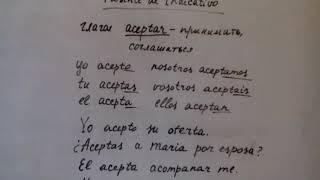 de Indicativo
глагол aceptar - принимать,
соглашаться
yo acepto nosotros aceptamos
tu aceptas vosotros aceptáis
el acepta ellos aceptan
Yo acepto su oferta.
¿Aceptas a maria por esposa?
El acepta acompanar me.